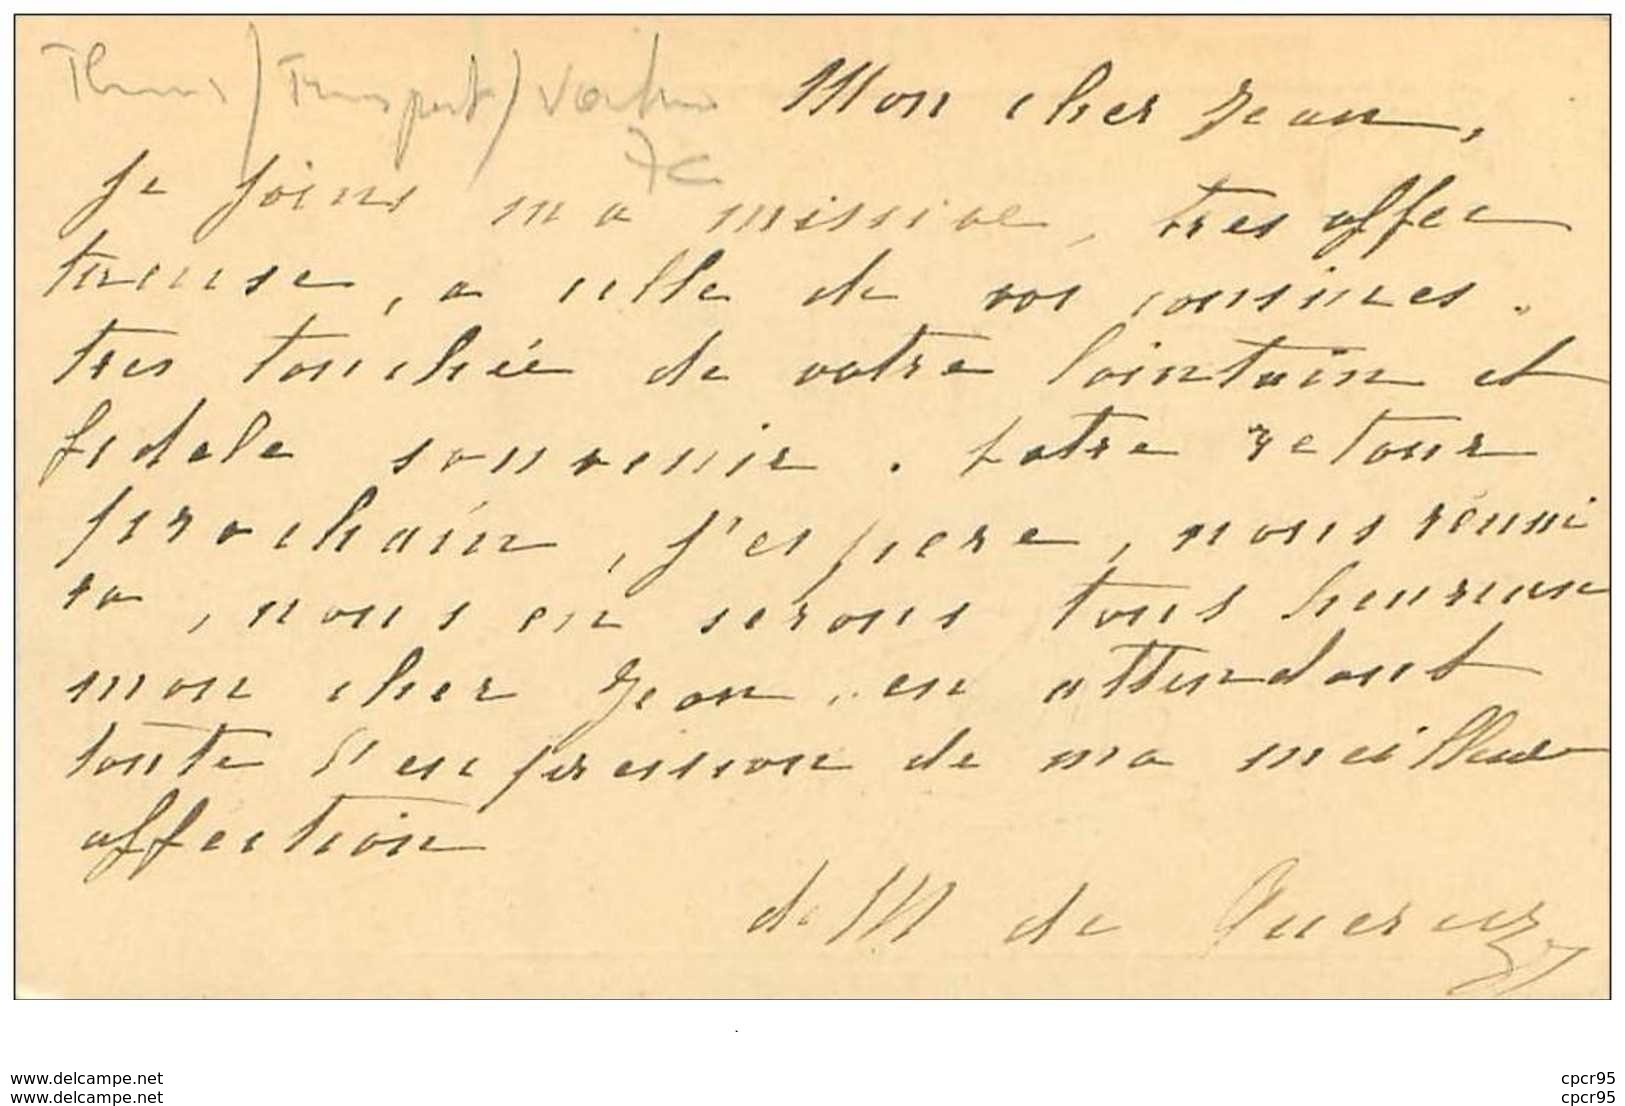 Mon cher Jean,
Je joins ma missive, tres affec
tueuse, a celle de vos cousines.
tres touchée de votre lointain et
fidele souvenir. Votre retour
prochain, j'espere, nous réuni
ra, nous en serons tous heureux
mon cher Jean, en attendant
toute l'expression de ma meilleure
affection
de M de
www.delcampe.net cpcr95
www.delcampe.net cpcr95